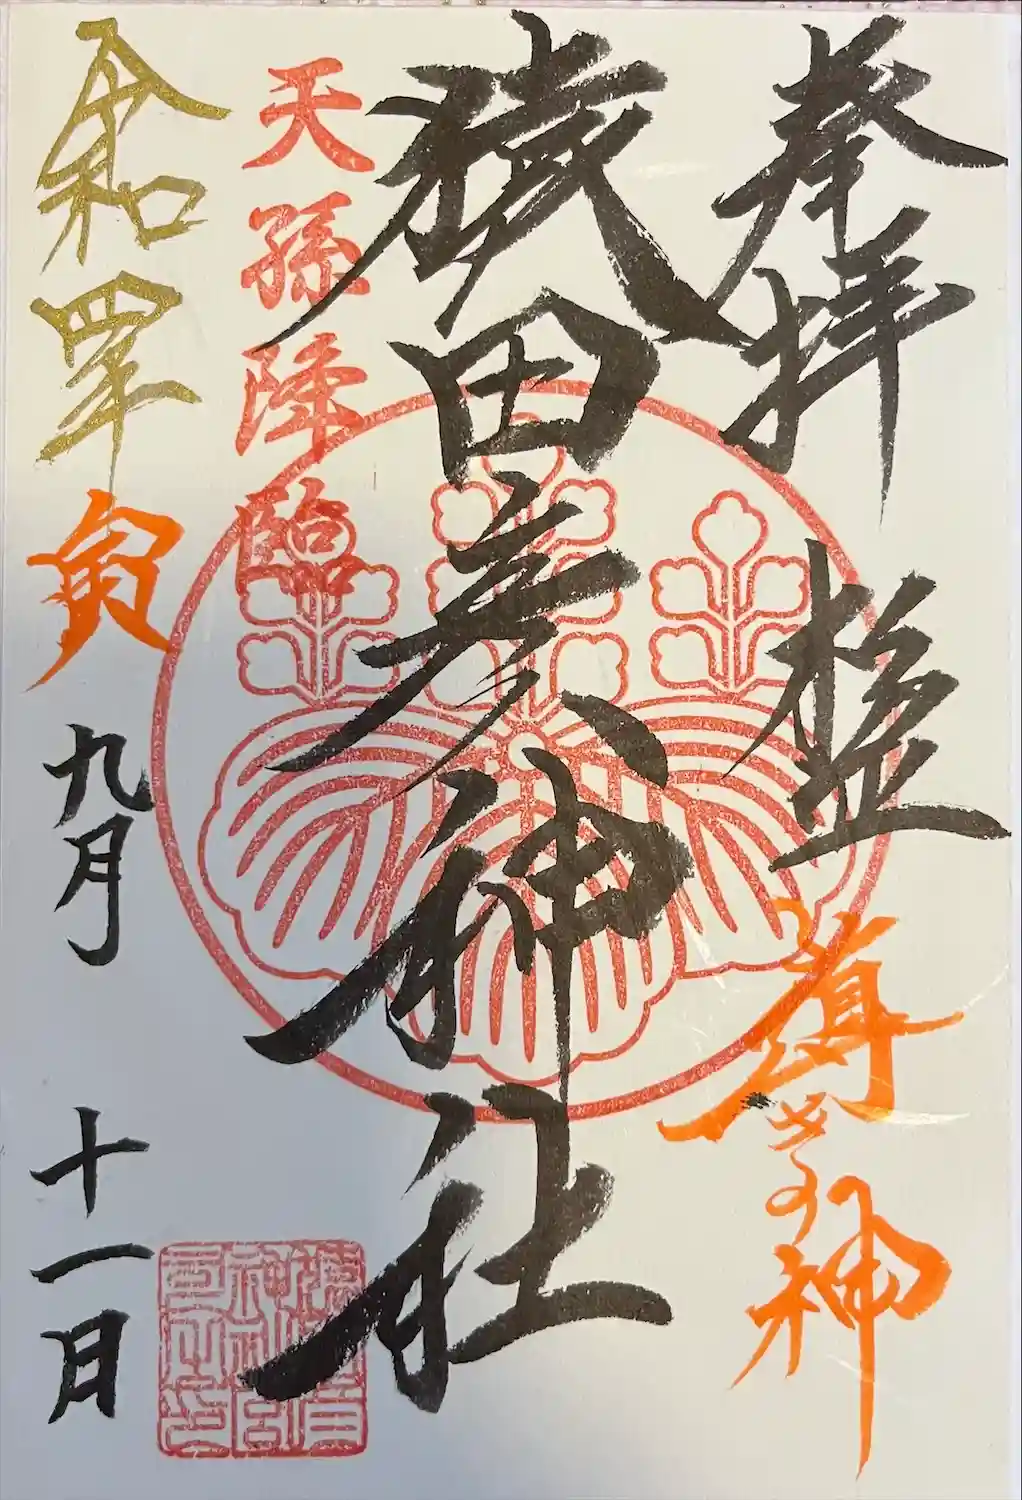 奉拝
導きの神
猿田彦神社
天孫降臨
令和四年 寅 九月 十一日